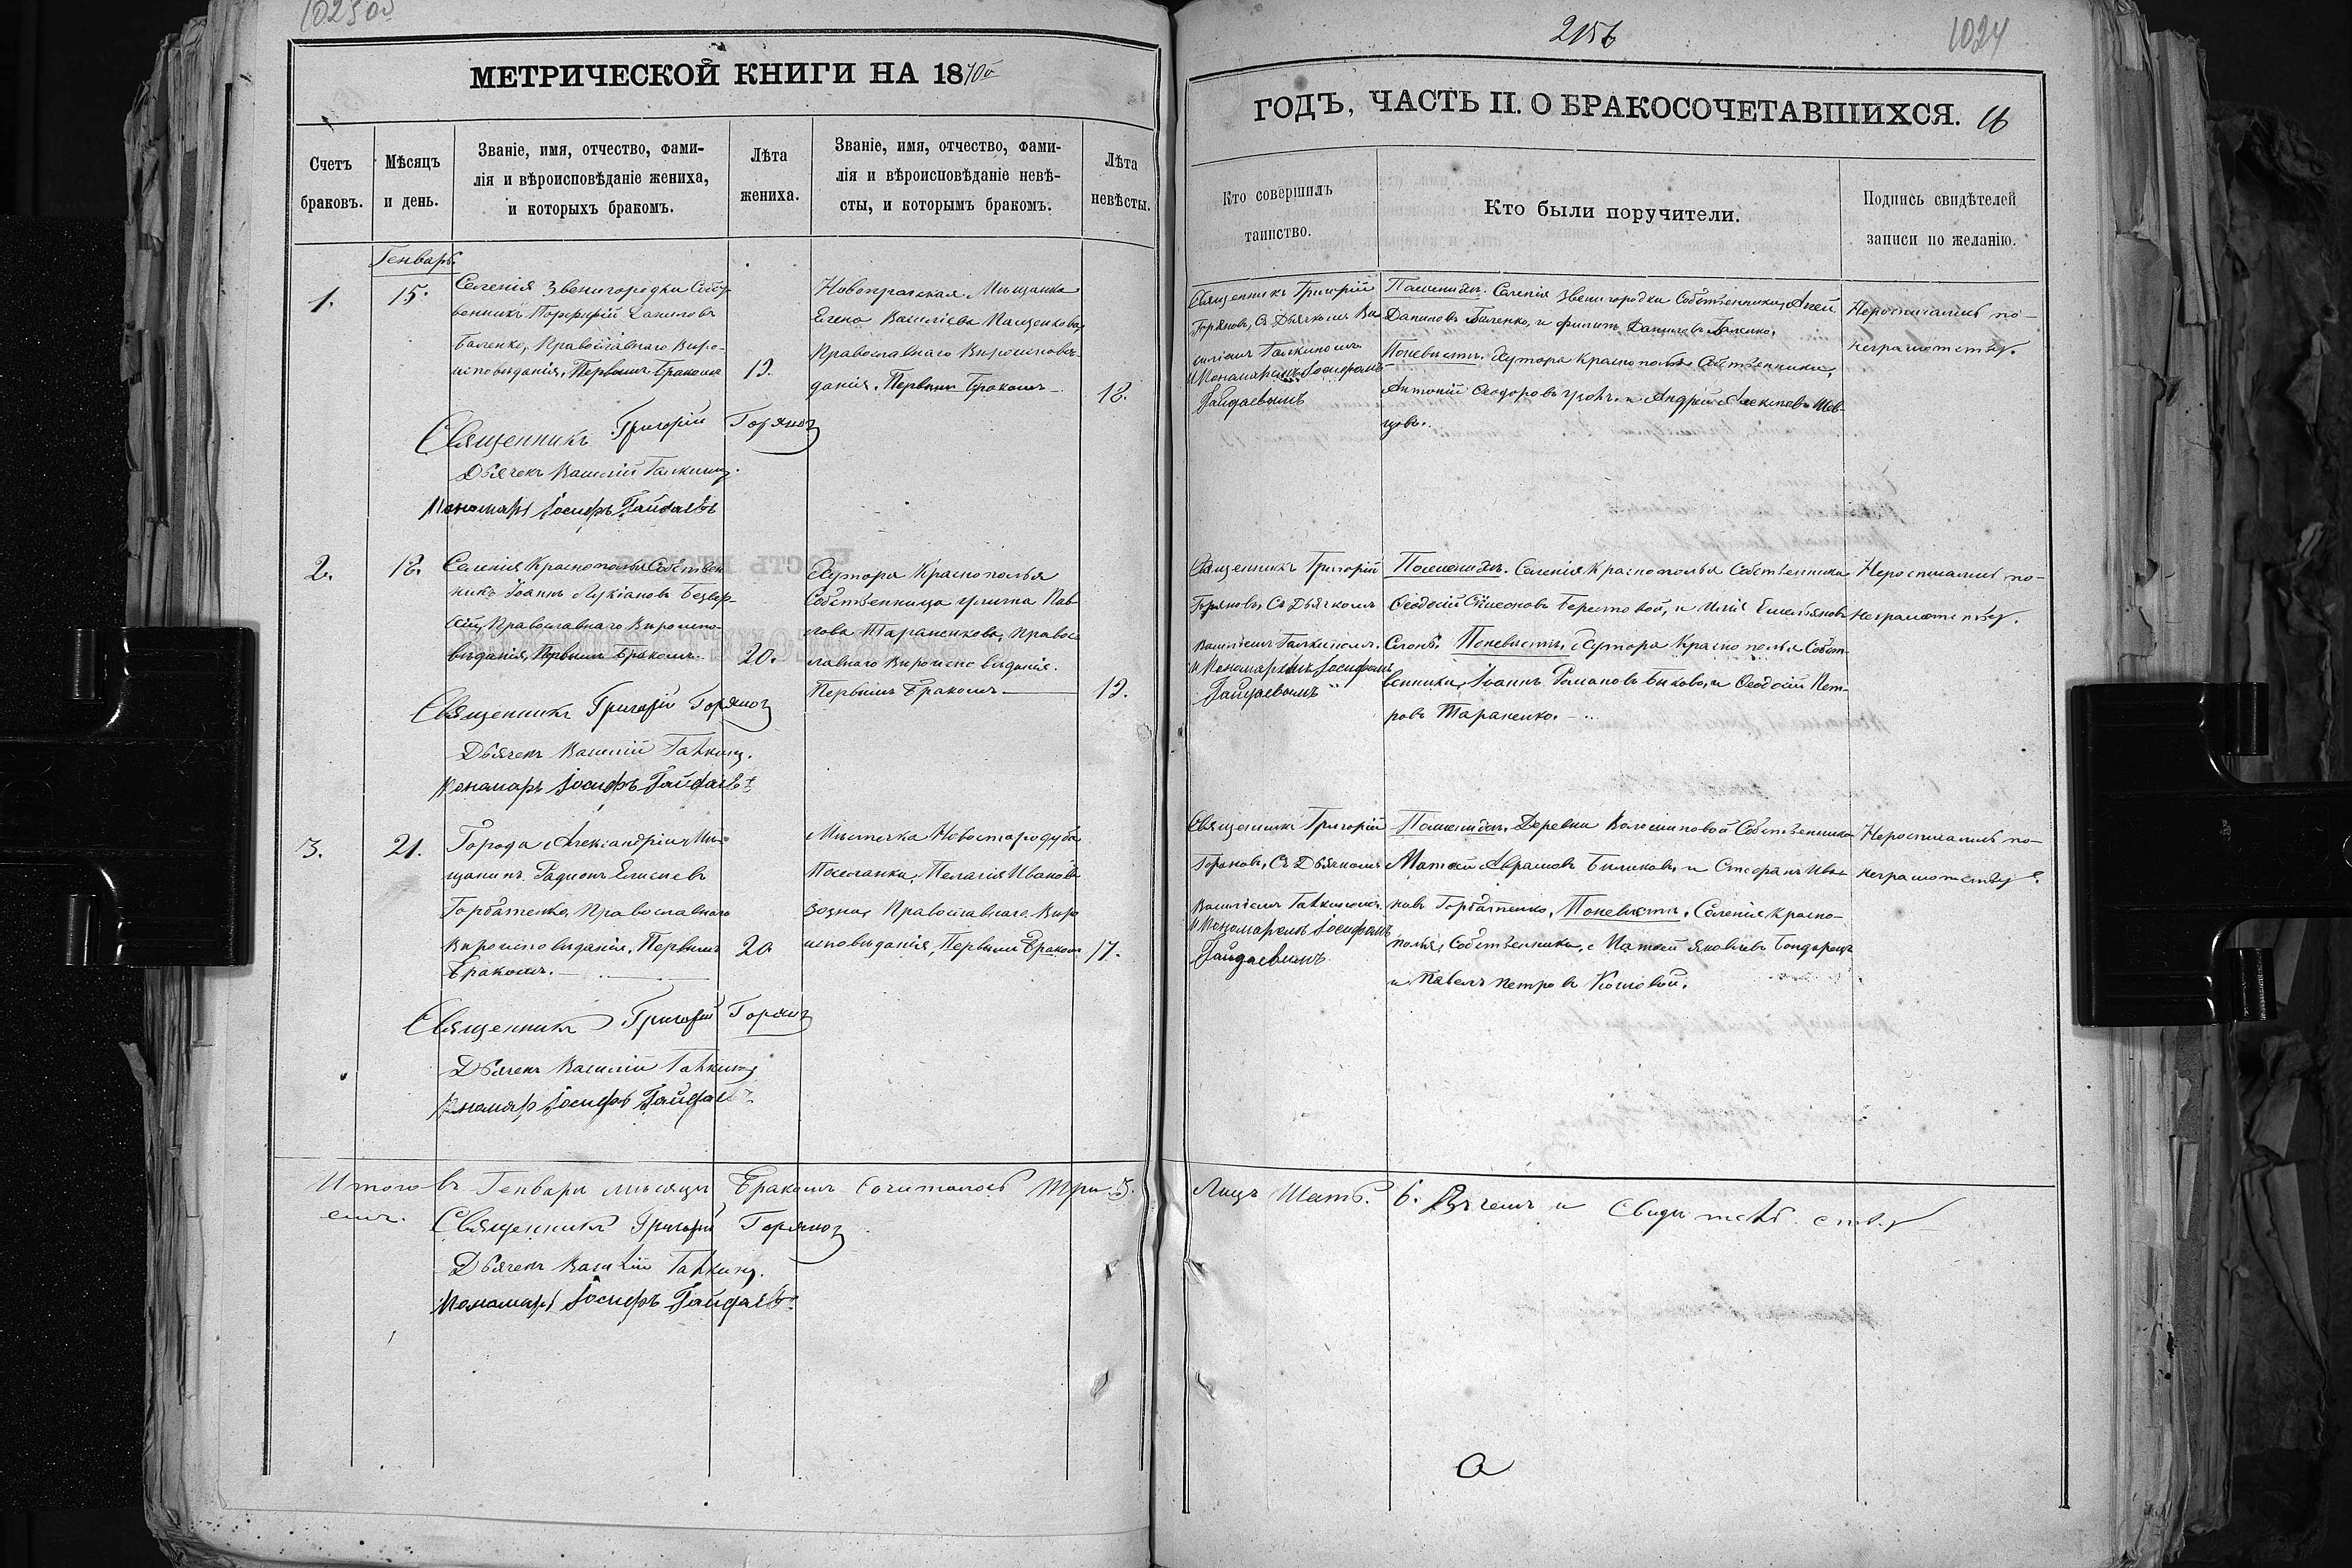 1023об
МЕТРИЧЕСКОЙ КНИГИ НА 1870й
Счетъ браковъ.
Мѣсяцъ и день.
Званіе, имя, отчество, фами-
лія и вѣроисповѣданіе жениха,
и которыхъ бракомъ.
Лѣта жениха.
Званіе, имя, отчество, фами-
лія и вѣроисповѣданіе невѣ-
сты, и которымъ бракомъ.
Лѣта невѣсты.
Генварь.
1.
15.
Селенія Звенигородки Собст
венникъ Порфирій Даниловъ
Баленко, Православнаго Вѣро-
исповѣданія, Первымъ Бракомъ
19.
Новопражская Мѣщанка
Елена Василіева Пащенкова,
Православнаго Вѣроисповѣ-
данія. Первымъ Бракомъ
18.
Священникъ Григорій Горяновъ
Дьячекъ Василій Галкинъ.
Пономарь Іосифъ Гайдаевъ
2.
18.
Селенія Краснополья Собствен
никъ Іоаннъ Лукіановъ
Православнаго Вѣроиспо-
вѣданія, Первымъ Бракомъ.
20.
Хутора Краснополья
Собственница Улита Пав-
лова Тараненкова, Правос
лавнаго Вѣроисповѣданія.
Первымъ Бракомъ
19.
Священникъ Григорій Горяновъ
Дьячекъ Василій Галкинъ.
Пономарь Іосифъ Гайдаевъ
3.
21.
Города Александріи Мѣ-
щанинъ Радіонъ Елисеевъ
Горбатенко, Православнаго
Вѣроисповѣданія, Первымъ
Бракомъ.
20
Мѣстечка Новостародуба
Поселянка, Пелагія Иванова
Православнаго Вѣро
исповѣданія, Первымъ Бракомъ
17.
Священникъ Григорій Горяновъ
Дьячекъ Василій Галкинъ
Пономарь Іосифъ Гайдаевъ
Итого въ Генварѣ мѣсяцѣ Бракомъ Сочиталось Три 3.
Священникъ Григорій Горяновъ
Дьячекъ Василій Галкинъ.
Пономарь Іосифъ Гайдаевъ
1024
ГОДЪ, ЧАСТЬ II. О БРАКОСОЧЕТАВШИХСЯ.
Кто совершилъ таинство.
Кто были поручители.
Подпись свидѣтелей
записи по желанію.
Священникъ Григорій
Горяновъ, Съ Дьячкомъ Ва
силіемъ Галкинымъ
и Пономаремъ Іосифомъ
Гайдаевымъ
По женихѣ. Селенія Звенигородки Собственники,
Даниловъ Баленко, и Филипъ Даниловъ Баленко,
По невѣстѣ. Хутора Краснополья Собственники,
Антоній Ѳеодоровъ и Андрей Алексѣевъ Шев-
цовъ.
Нерасписались по-
неграмотству.
Священникъ Григорій
Горяновъ, Съ Дьячкомъ
Василіемъ Галкинымъ.
и Пономаремъ Іосифомъ
Гайдаевымъ
По женихѣ. Селенія Краснополья Собственники
Ѳеодосій Симеоновъ Берестовой, и Илія Емельяновъ
По невѣстѣ. Хутора Краснополья Собст-
венники, Іоаннъ Романовъ Быковъ, и Ѳеодосій Пет-
ровъ Тараненко.
Нерасписались по-
неграмотству.
Священникъ Григорій
Горяновъ, Съ Дьячкомъ
Василіемъ Галкинымъ.
и Пономаремъ Іосифомъ
Гайдаевымъ
По женихѣ. Деревни Собственники
Матѳей Аврамовъ Биликовъ, и Стефанъ Ива-
новъ Горбатенко, По невѣстѣ. Селенія Красно-
полья, Собственники, Матѳей Яковлевъ Бондарець
и Павелъ Петровъ Кошовой.
Нерасписались по-
неграмотству.
Лицъ Шесть. 6. Въ чемъ и Свидѣтельству
емъ.